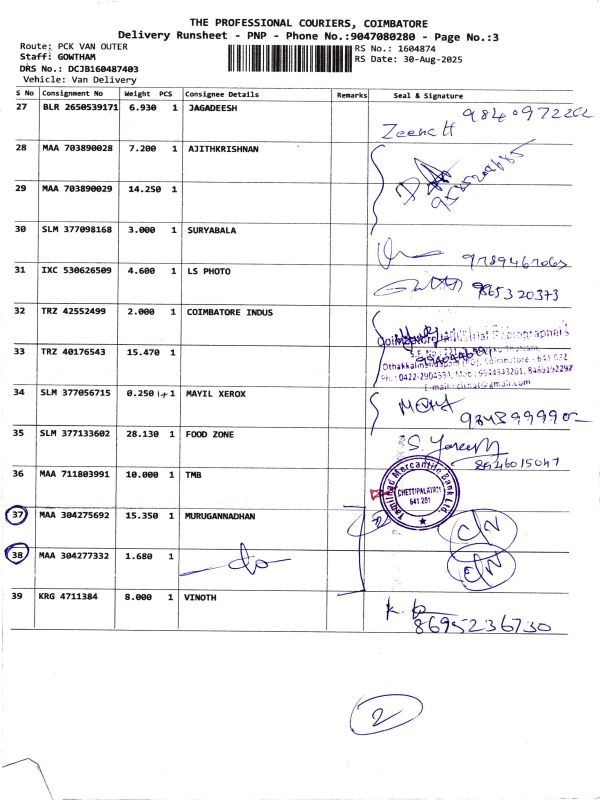 THE PROFESSIONAL COURIERS, COIMBATORE
Delivery Runsheet - PNP - Phone No.:9047080280 - Page No.:3
Route: PCK VAN OUTER
Staff: GOWTHAM
DRS No.: DCJB160487403
Vehicle: Van Delivery
RS No.: 1604874
RS Date: 30-Aug-2025
S No Consignment No Weight PCS Consignee Details Remarks Seal & Signature
27 BLR 2650539171 6.930 1 JAGADEESH
Zeenath
28 MAA 703890028 7.200 1 AJITHKRISHNAN
29 MAA 703890029 14.250 1
30 SLM 377098168 3.000 1 SURYABALA
31 IXC 530626509 4.600 1 LS PHOTO
9865320373
32 TRZ 42552499 2.000 1 COIMBATORE INDUS
33 TRZ 40176543 15.470 1
34 SLM 377056715 0.250 1+1 MAYIL XEROX
35 SLM 377133602 28.130 1 FOOD ZONE
36 MAA 711803991 10.000 1 TMB
Tamilnad Mercantile Bank Ltd.
CHETTIPALAYAM
641 201
37 MAA 304275692 15.350 1 MURUGANNADHAN
C/N
38 MAA 304277332 1.680 1 do
C/N
39 KRG 4711384 8.000 1 VINOTH
8695236730
2